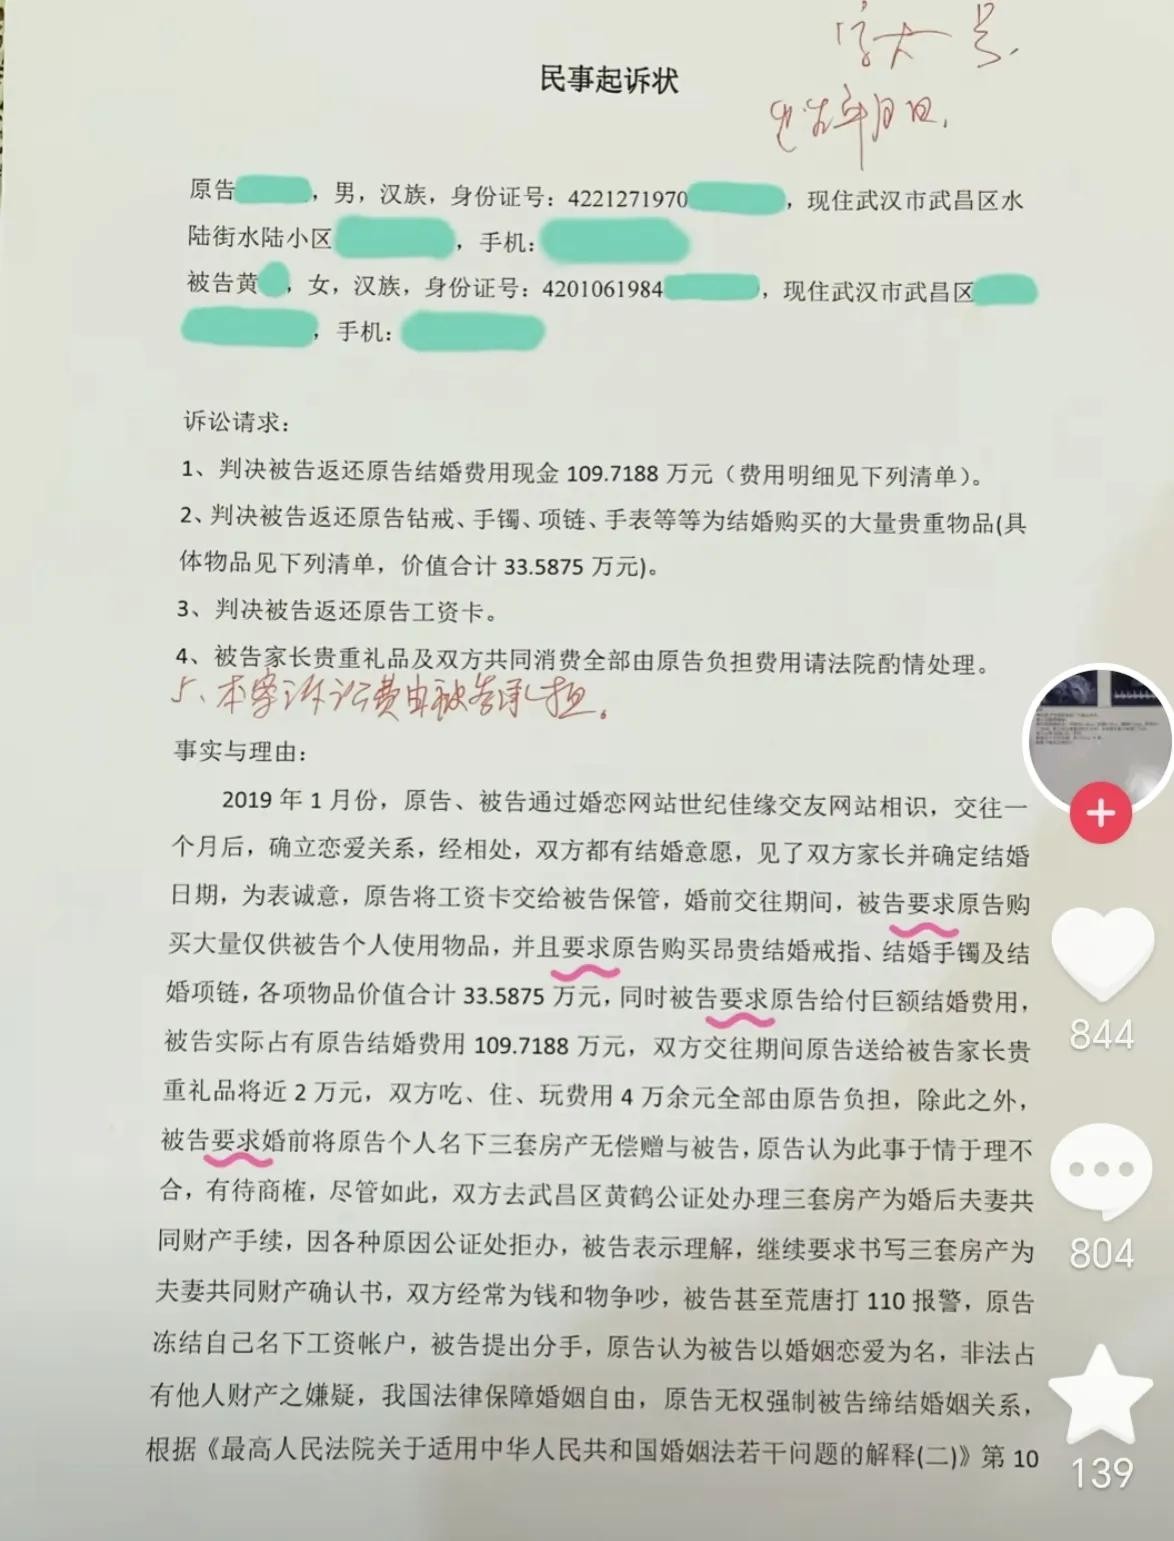 字大一号.
民事起诉状
年月日.
原告，男，汉族，身份证号：4221271970，现住武汉市武昌区水
陆街水陆小区，手机：
被告黄，女，汉族，身份证号：4201061984，现住武汉市武昌区
，手机：
诉讼请求：
1、判决被告返还原告结婚费用现金 109.7188 万元（费用明细见下列清单）。
2、判决被告返还原告钻戒、手镯、项链、手表等等为结婚购买的大量贵重物品(具
体物品见下列清单，价值合计 33.5875 万元)。
3、判决被告返还原告工资卡。
4、被告家长贵重礼品及双方共同消费全部由原告负担费用请法院酌情处理。
5、本案诉讼费由被告承担。
事实与理由：
2019 年 1 月份，原告、被告通过婚恋网站世纪佳缘交友网站相识，交往一
个月后，确立恋爱关系，经相处，双方都有结婚意愿，见了双方家长并确定结婚
日期，为表诚意，原告将工资卡交给被告保管，婚前交往期间，被告要求原告购
买大量仅供被告个人使用物品，并且要求原告购买昂贵结婚戒指、结婚手镯及结
婚项链，各项物品价值合计 33.5875 万元，同时被告要求原告给付巨额结婚费用，
被告实际占有原告结婚费用 109.7188 万元，双方交往期间原告送给被告家长贵
重礼品将近 2 万元，双方吃、住、玩费用 4 万余元全部由原告负担，除此之外，
被告要求婚前将原告个人名下三套房产无偿赠与被告，原告认为此事于情于理不
合，有待商榷，尽管如此，双方去武昌区黄鹤公证处办理三套房产为婚后夫妻共
同财产手续，因各种原因公证处拒办，被告表示理解，继续要求书写三套房产为
夫妻共同财产确认书，双方经常为钱和物争吵，被告甚至荒唐打 110 报警，原告
冻结自己名下工资帐户，被告提出分手，原告认为被告以婚姻恋爱为名，非法占
有他人财产之嫌疑，我国法律保障婚姻自由，原告无权强制被告缔结婚姻关系，
根据《最高人民法院关于适用中华人民共和国婚姻法若干问题的解释(二)》第 10
844
804
139